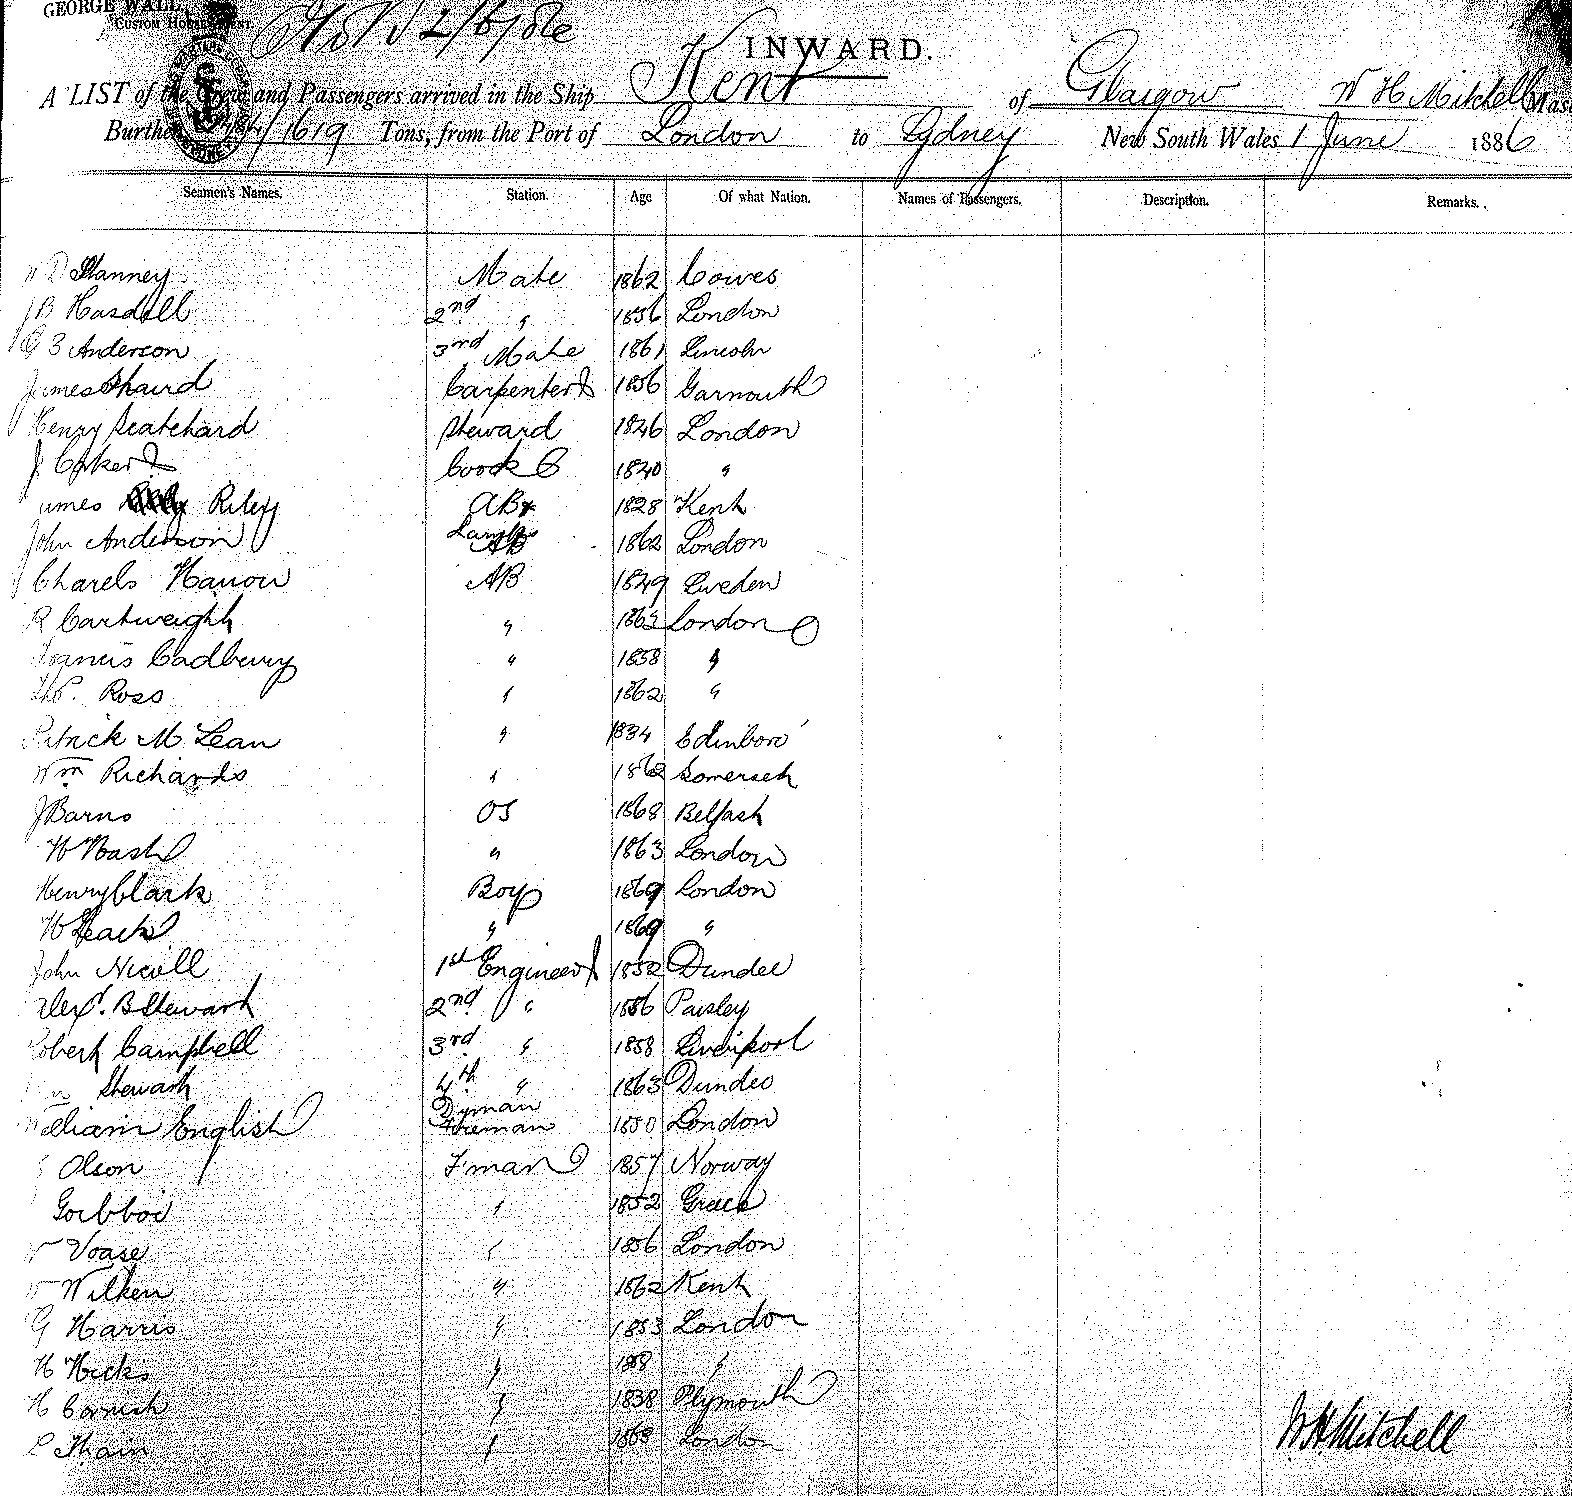 GEORGE WALL,
CUSTOM HOUSE
INWARD.
A LIST of the Crew and Passengers arrived in the Ship Kent of Glasgow W H Mitchell Mas
Burthen 1619 Tons, from the Port of London to Sydney New South Wales 1 June 1886
Seamen's Names. Station. Age Of what Nation. Names of Passengers. Description. Remarks.
Stanney Mate 1862 Cowes
J B Hasdell 2nd " 1856 London
G B Anderson 3rd Mate 1861 Lincoln
James Shaird Carpenter 1856 Garmouth
Henry Scatchard Steward 1846 London
J. Cook 1840 "
James Riley AB 1828 Kent
John Anderson Lamps AB 1862 London
Charels AB 1849 Sweden
R Cartweigh " 1863 London
Francis Cadbury " 1858 "
Ross " 1862 "
Patrick McLean " 1834 Edinboro'
Wm Richards " 1862 Somerset
J Barns OS 1868 Belfast
W Nash " 1863 London
Henry Clark Boy 1869 London
W Leach " 1869 "
John Nicoll 1st Engineer 1852 Dundee
Alexr. B Stewart 2nd " 1856 Paisley
Robert Campbell 3rd " 1858 Liverpool
Wm Stewart 4th " 1863 Dundee
William English Dyman Fireman 1850 London
Olson Fman 1857 Norway
" 1852 Greece
W Voase " 1856 London
W Wilken " 1862 Kent
G Harris " 1853 London
H Hicks " 1858 "
H Cornish " 1838 Plymouth
Thain " London
W H Mitchell